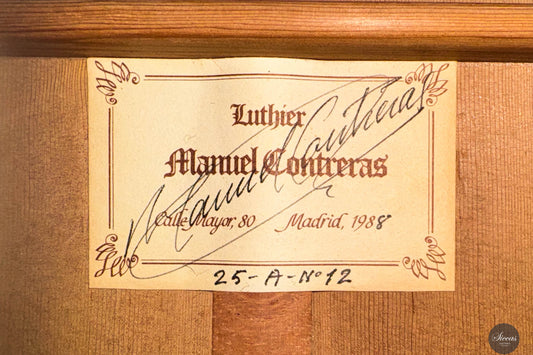 Luthier
Manuel Contreras
Manuel Contreras
Calle Mayor, 80 Madrid, 1988
25-A-Nº12
Siccas